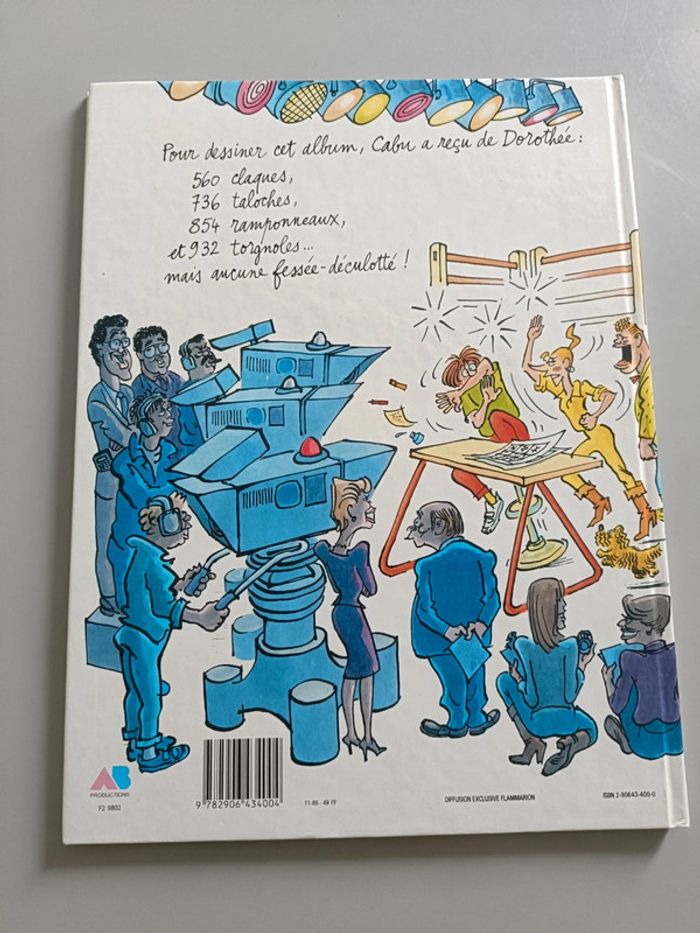 Pour dessiner cet album, Cabu a reçu de Dorothée :
560 claques,
736 taloches,
854 ramponneaux,
et 932 torgnoles...
mais aucune fessée-déculotté !
AB
PRODUCTIONS
F2 9802
9 782906 434004
11-86 - 49 FF
DIFFUSION EXCLUSIVE FLAMMARION
ISBN 2-90643-400-0